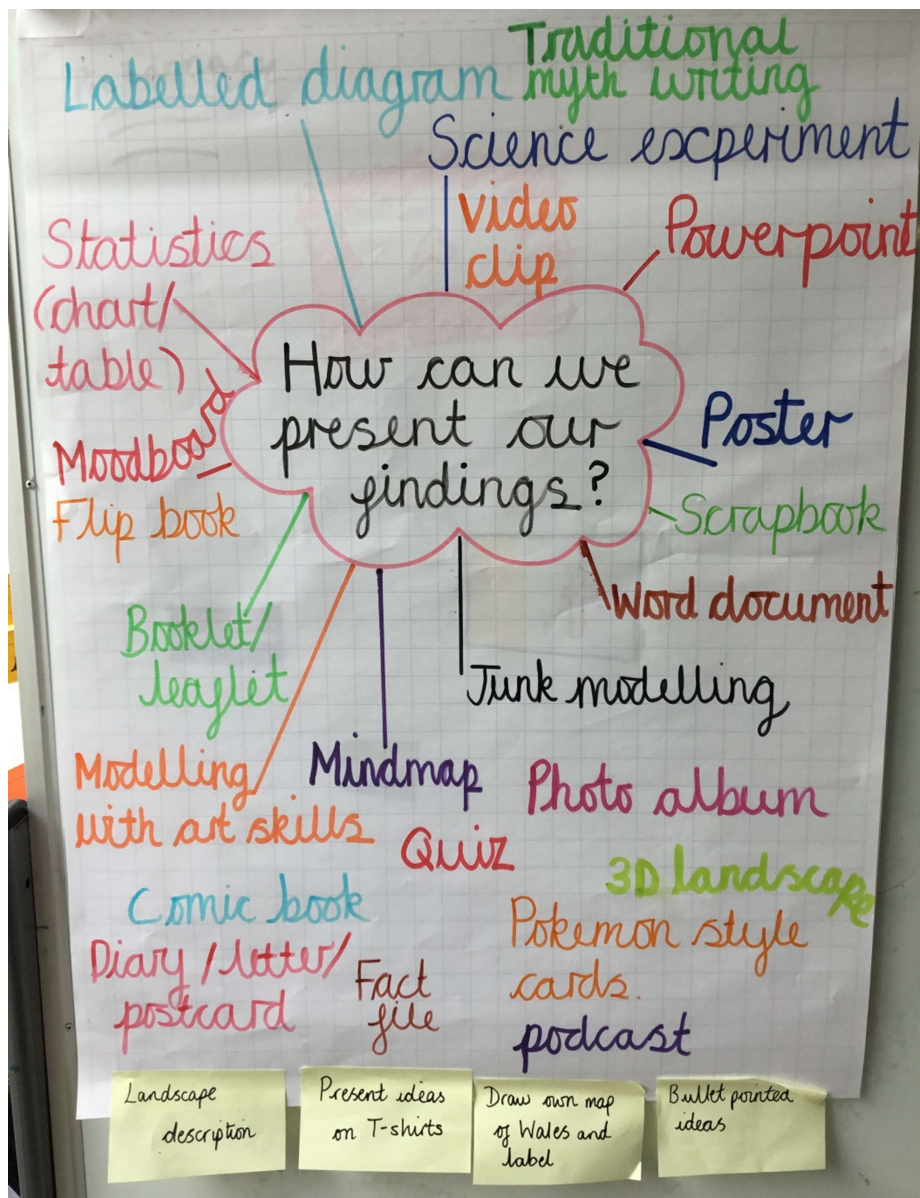 Traditional
Labelled diagram myth writing
Science experiment
Video
clip
Powerpoint
Statistics
(chart/
table)
How can we
present our
findings?
Moodboard
Poster
Flip book
Scrapbook
Word document
Booklet/
leaflet
Junk modelling
Modelling
with art skills
Mindmap
Photo album
Quiz
3D landscape
Comic book
Pokemon style
cards.
Diary/letter/
postcard
Fact
file
podcast
Landscape
description
Present ideas
on T-shirts
Draw own map
of Wales and
label
Bullet pointed
ideas